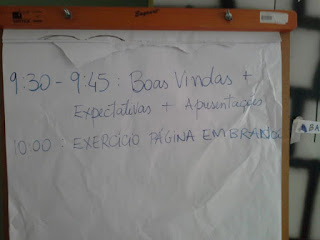 9:30 - 9:45 : Boas Vindas +
Expectativas + Apresentações
10:00 : EXERCÍCIO PÁGINA EM BRANCO